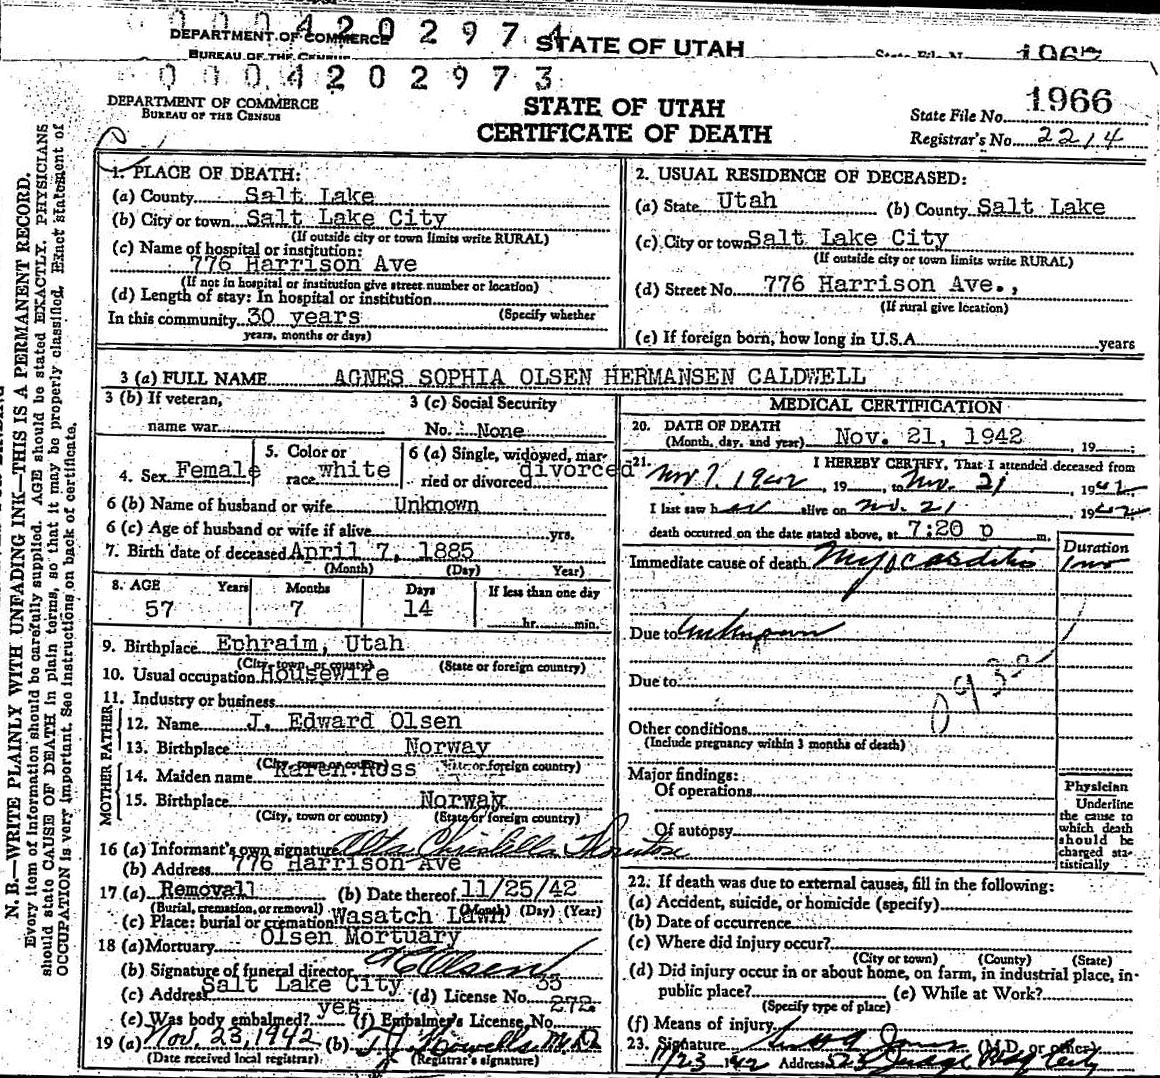 0 0 0 4 2 0 2 9 7 4
DEPARTMENT OF COMMERCE
BUREAU OF THE CENSUS
STATE OF UTAH
State File No. 1967
0 0 0 4 2 0 2 9 7 3
DEPARTMENT OF COMMERCE
BUREAU OF THE CENSUS
STATE OF UTAH
CERTIFICATE OF DEATH
State File No. 1966
Registrar's No. 2214
N. B.—WRITE PLAINLY WITH UNFADING INK—THIS IS A PERMANENT RECORD.
Every item of information should be carefully supplied. AGE should be stated EXACTLY. PHYSICIANS
should state CAUSE OF DEATH in plain terms, so that it may be properly classified. Exact statement of
OCCUPATION is very important. See instructions on back of certificate.
1. PLACE OF DEATH:
(a) County Salt Lake
(b) City or town Salt Lake City
(If outside city or town limits write RURAL)
(c) Name of hospital or institution:
776 Harrison Ave
(If not in hospital or institution give street number or location)
(d) Length of stay: In hospital or institution
(Specify whether
In this community 30 years
years, months or days)
2. USUAL RESIDENCE OF DECEASED:
(a) State Utah (b) County Salt Lake
(c) City or town Salt Lake City
(If outside city or town limits write RURAL)
(d) Street No. 776 Harrison Ave.,
(If rural give location)
(e) If foreign born, how long in U.S.A. years
3 (a) FULL NAME AGNES SOPHIA OLSEN HERMANSEN CALDWELL
3 (b) If veteran,
name war
3 (c) Social Security
No. None
4. Sex Female
5. Color or
race white
6 (a) Single, widowed, mar-
ried or divorced divorced
6 (b) Name of husband or wife Unknown
6 (c) Age of husband or wife if alive yrs.
7. Birth date of deceased April 7, 1885
(Month) (Day) Year)
8. AGE Years Months Days If less than one day
57 7 14 hr. min.
9. Birthplace Ephraim, Utah
(City, town, or county) (State or foreign country)
10. Usual occupation Housewife
11. Industry or business
FATHER
12. Name J. Edward Olsen
13. Birthplace Norway
(City, town or county) State or foreign country)
MOTHER
14. Maiden name Karen Ross
15. Birthplace Norway
(City, town or county) (State or foreign country)
16 (a) Informant's own signature
(b) Address 776 Harrison Ave
17 (a) Removall (b) Date thereof 11/25/42
(Burial, cremation, or removal) (Month) (Day) (Year)
(c) Place: burial or cremation Wasatch Lawn
18 (a) Mortuary Olsen Mortuary
(b) Signature of funeral director
(c) Address Salt Lake City (d) License No. 35
(e) Was body embalmed? yes (f) Embalmer's License No. 272
19 (a) Nov. 23, 1942 (b)
(Date received local registrar) (Registrar's signature)
MEDICAL CERTIFICATION
20. DATE OF DEATH
(Month, day, and year) Nov. 21, 1942 , 19
21. I HEREBY CERTIFY, That I attended deceased from
Nov 7. 1942 , 19 , to Nov. 21 , 1942
I last saw her alive on Nov. 21 , 1942
death occurred on the date stated above, at 7:20 p m.
Duration
Immediate cause of death Myocarditis 1 mo
Due to Unknown
Due to
093
Other conditions
(Include pregnancy within 3 months of death)
Major findings:
Of operations
Of autopsy
Physician
Underline
the cause to
which death
should be
charged sta-
tistically
22. If death was due to external causes, fill in the following:
(a) Accident, suicide, or homicide (specify)
(b) Date of occurrence
(c) Where did injury occur?
(City or town) (County) (State)
(d) Did injury occur in or about home, on farm, in industrial place, in-
public place? (e) While at Work?
(Specify type of place)
(f) Means of injury
23. Signature (M.D. or other)
11/23 1942 Address 523 Judge Bldg City